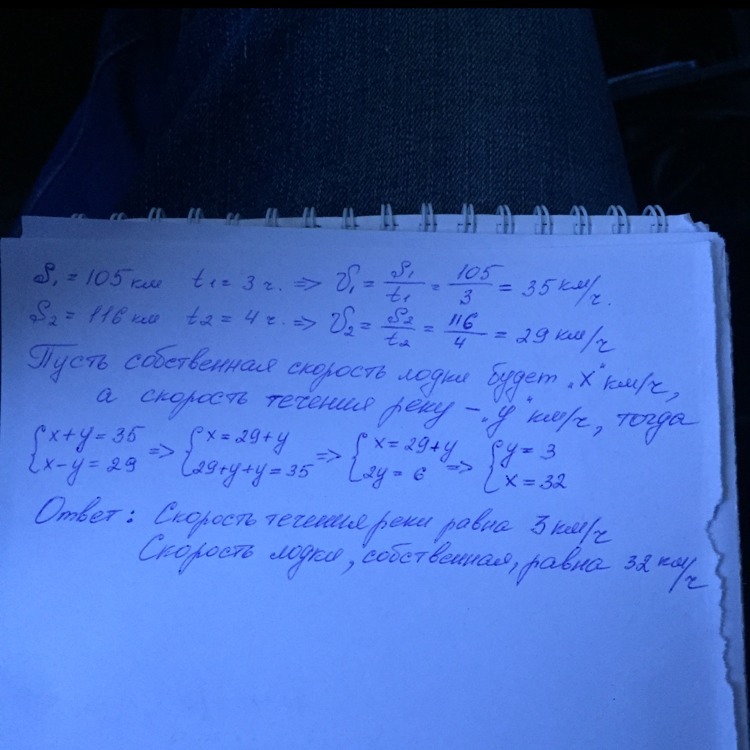 S₁ = 105 км t₁ = 3 ч. => V₁ = S₁/t₁ = 105/3 = 35 км/ч.
S₂ = 116 км t₂ = 4 ч. => V₂ = S₂/t₂ = 116/4 = 29 км/ч
Пусть собственная скорость лодки будет „x" км/ч,
а скорость течения реку – „y" км/ч, тогда
{x+y=35 => {x=29+y => {x=29+y => {y=3
{x-y=29 {29+y+y=35 {2y=6 {x=32
Ответ: Скорость течения реки равна 3 км/ч
Скорость лодки, собственная, равна 32 км/ч